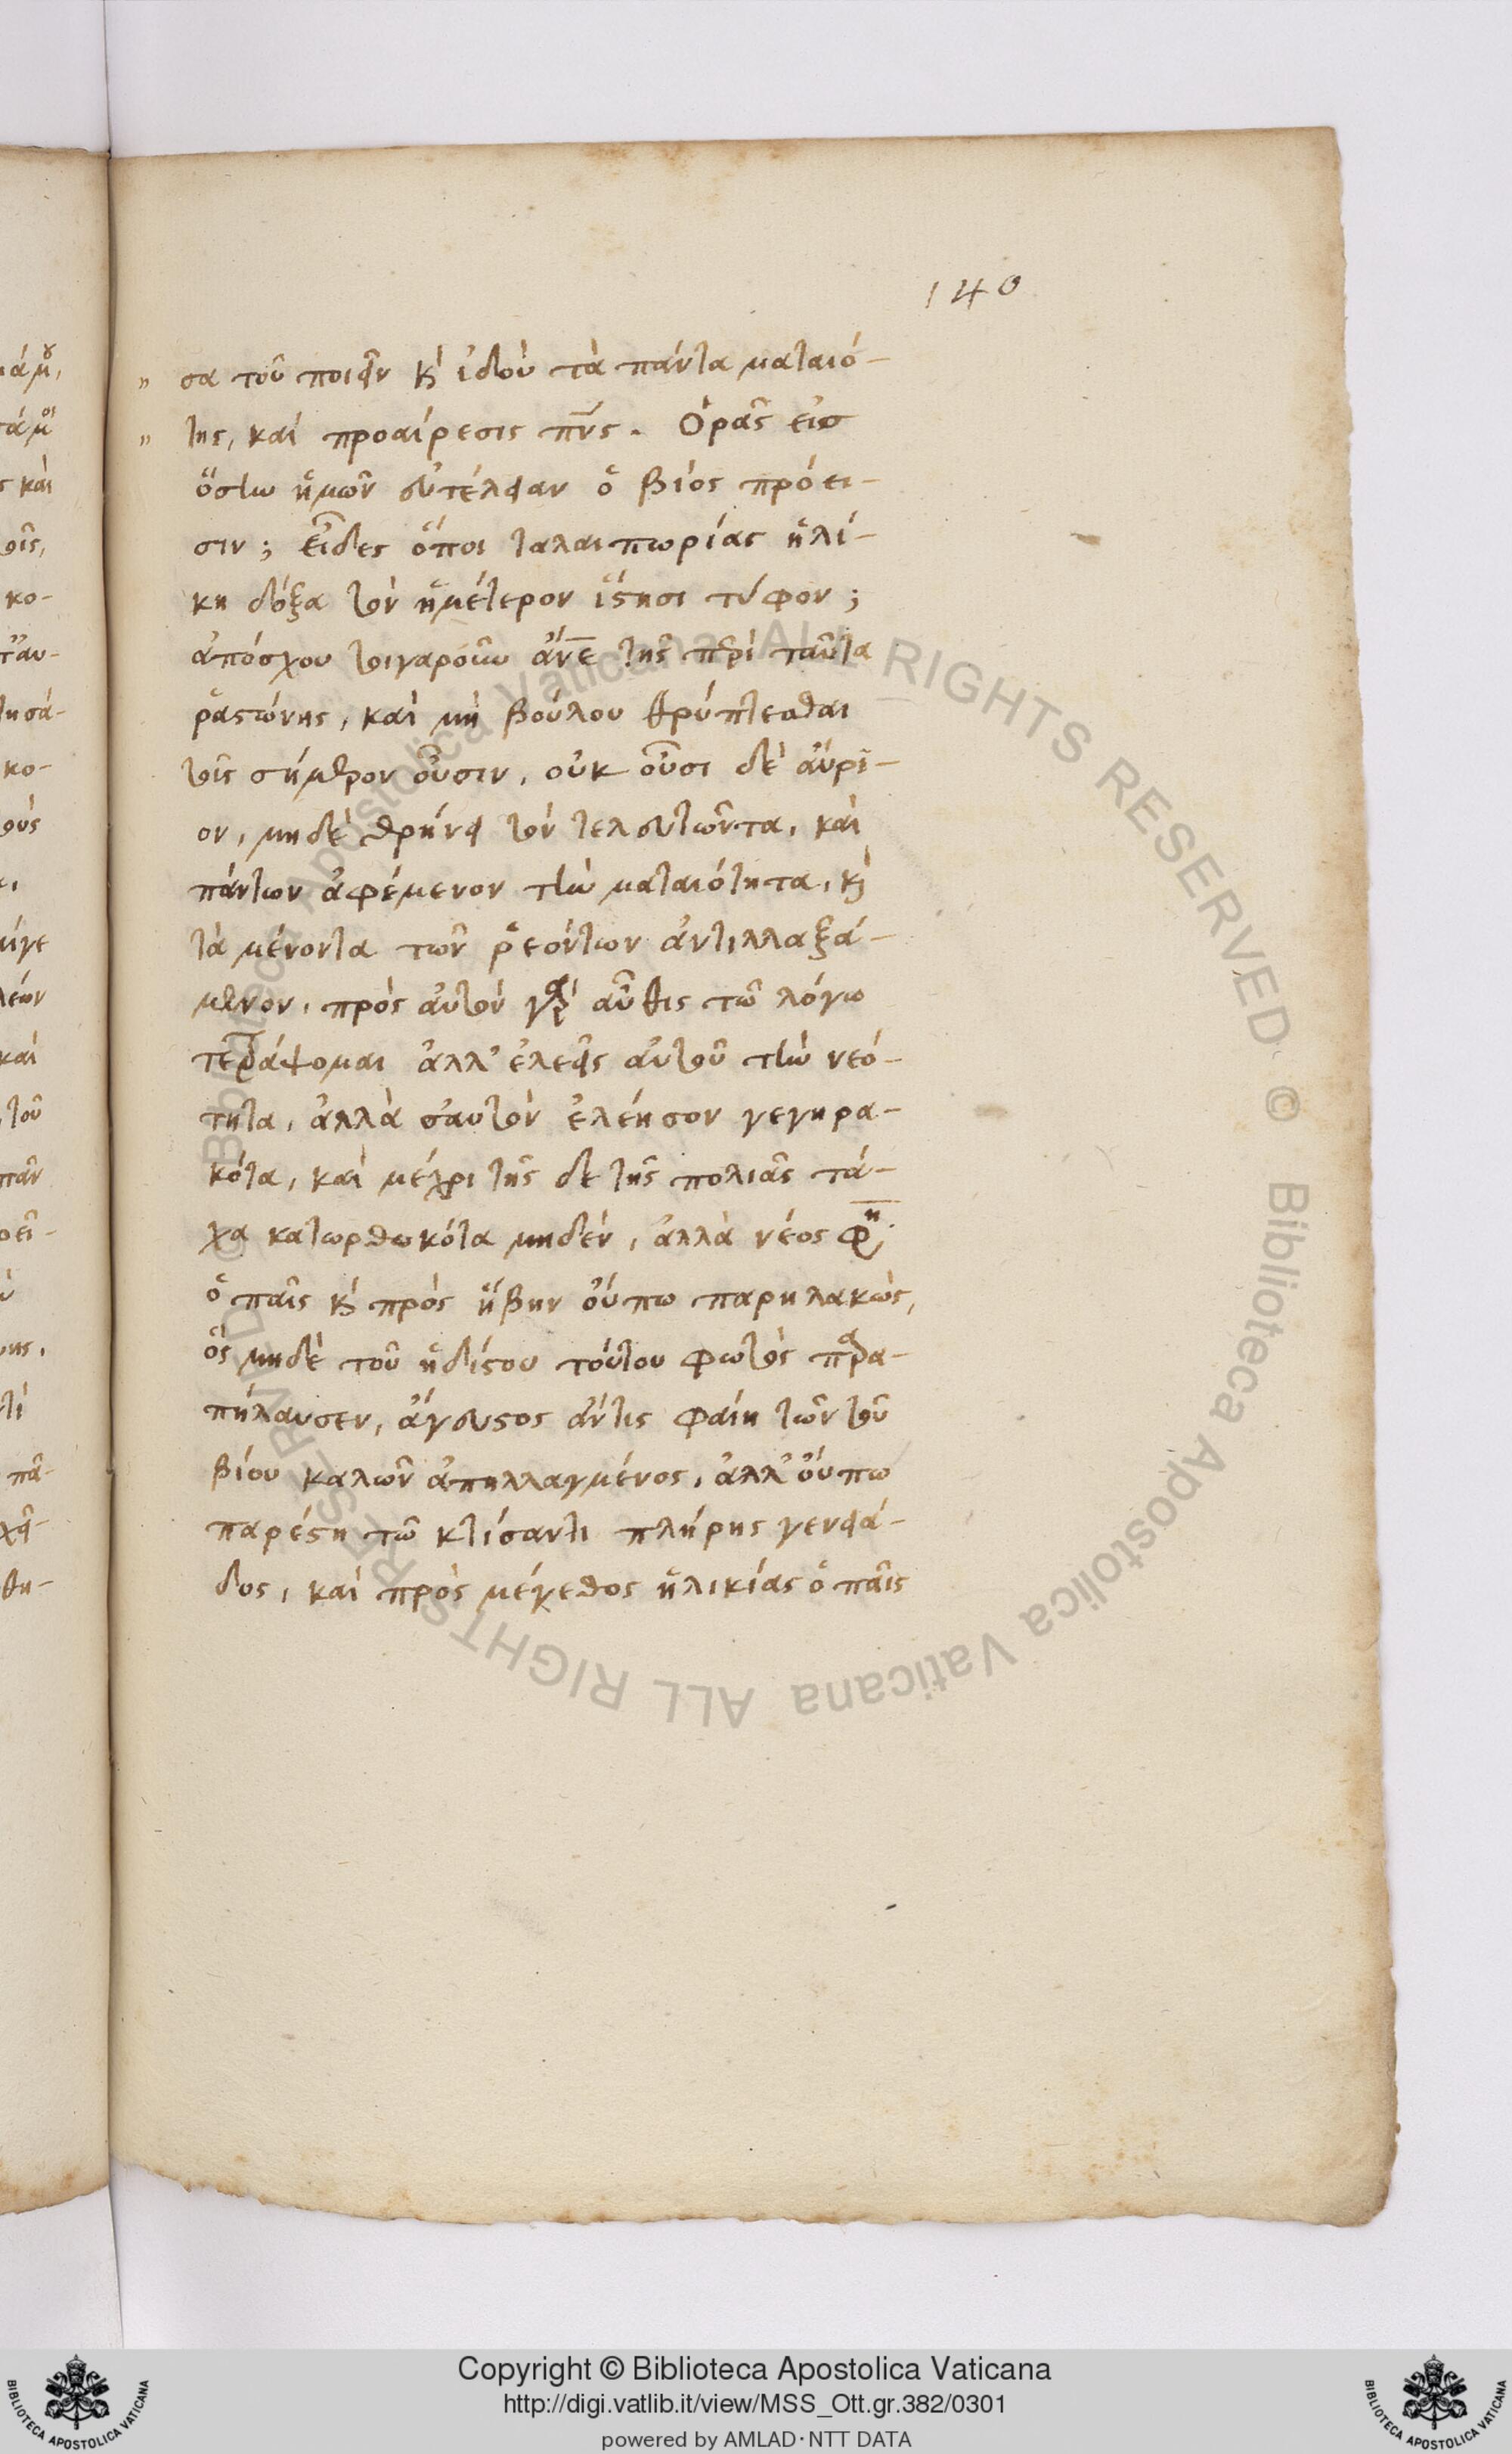 140
" σα τοῦ ποιεῖν κ ἰδοὺ τὰ πάντα ματαιό-
" της, καὶ προαίρεσις πνς. Ὁρᾷς εἰς
ὅστω ἡμῶν εὐτέλειαν ὁ βίος πρόει-
σιν; εἶδες ὅποι ταλαιπωρίας ἡλί-
κη δόξα τὸν ἡμέτερον ἵστησι τύφον;
ἀπόσχου τοιγαροῦν ἄνε τῆς περὶ ταῦτα
ῥαστώνης, καὶ μὴ βούλου θρύπτεσθαι
τοῖς σήμερον οὖσιν, οὐκ οὖσι δὲ αὔρι-
ον, μηδὲ θρήνει τὸν τελευτῶντα, καὶ
πάντων ἀφέμενον τὴν ματαιότητα, κ
τὰ μένοντα τῶν ῥεόντων ἀντιλλαξά-
μενον, πρὸς αὐτὸν γὰρ αὖθις τῶ λόγω
τετράψομαι ἀλλ' ἐλεεῖς αὐτοῦ τὴν νεό-
τητα, ἀλλὰ σαυτὸν ἐλέησον γεγηρα-
κότα, καὶ μέχρι τῆς δε τῆς πολιᾶς τά-
χα κατωρθωκότα μηδέν, ἀλλὰ νέος φη
ὁ παῖς κ πρὸς ἥβην οὔπω παρηλακὼς,
ὃς μηδὲ τοῦ ἡδίστου τούτου φωτὸς παρα-
πήλαυσεν, ἄγευστος ἄντις φαίη τῶν τοῦ
βίου καλῶν ἀπηλλαγμένος, ἀλλ' οὔπω
παρέστη τῶ κτίσαντι πλήρης γενειά-
δος, καὶ πρὸς μέγεθος ἡλικίας ὁ παῖς
Copyright © Biblioteca Apostolica Vaticana
http://digi.vatlib.it/view/MSS_Ott.gr.382/0301
powered by AMLAD·NTT DATA